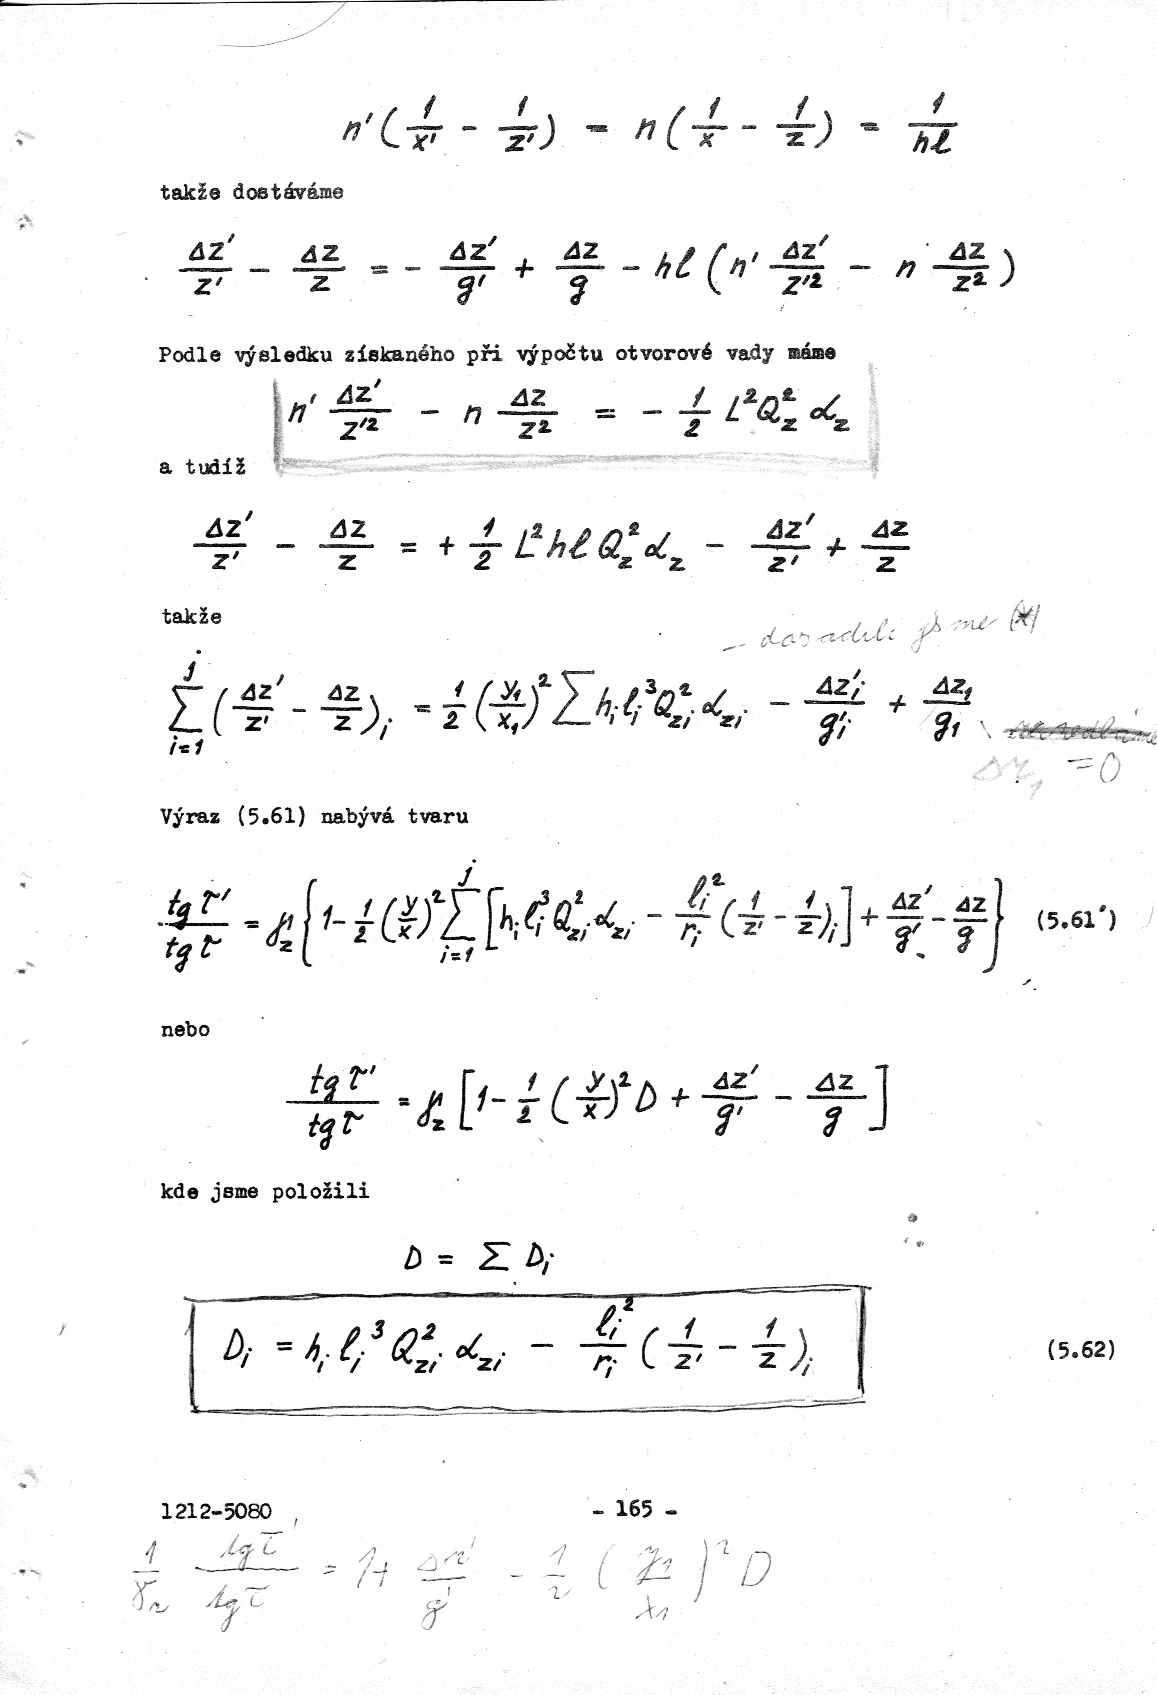 n' ( 1/x' - 1/z' ) = n ( 1/x - 1/z ) = 1/hl
takže dostáváme
Δz'/z' - Δz/z = - Δz'/g' + Δz/g - hl ( n' Δz'/z'² - n Δz/z² )
Podle výsledku získaného při výpočtu otvorové vady máme
n' Δz'/z'² - n Δz/z² = - 1/2 L² Q_z² α_z
a tudíž
Δz'/z' - Δz/z = + 1/2 L² h l Q_z² α_z - Δz'/z' + Δz/z
takže
- dosadili jsme (*)
∑_{i=1}^{j} ( Δz'/z' - Δz/z )_i = 1/2 ( y₁/x₁ )² ∑ h_i l_i³ Q_zi² α_zi - Δz'_i/g'_i + Δz₁/g₁
Δz₁ = 0
Výraz (5.61) nabývá tvaru
tg τ'/tg τ = γ_z { 1 - 1/2 ( y/x )² ∑_{i=1}^{j} [ h_i l_i³ Q_zi² α_zi - l_i²/r_i ( 1/z' - 1/z )_i ] + Δz'/g' - Δz/g } (5.61')
nebo
tg τ'/tg τ = γ_z [ 1 - 1/2 ( y/x )² D + Δz'/g' - Δz/g ]
kde jsme položili
D = ∑ D_i
D_i = h_i l_i³ Q_zi² α_zi - l_i²/r_i ( 1/z' - 1/z )_i (5.62)
1212-5080 - 165 -
1/γ_z tg τ'/tg τ = 1 + Δz'/g' - 1/2 ( y₁/x₁ )² D